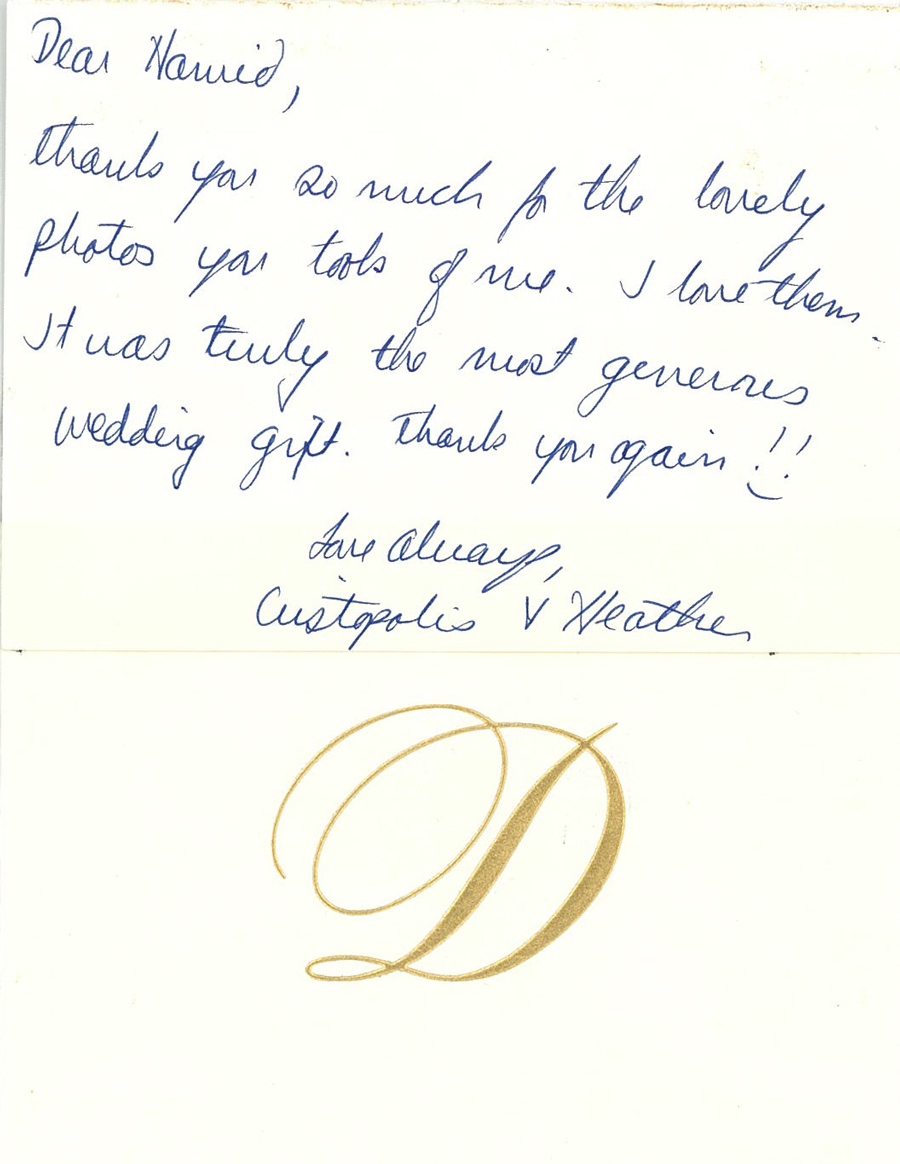 Dear Hamid,
thank you so much for the lovely
photos you took of me. I love them.
It was truly the most generous
wedding gift. Thank you again!!
Love Always,
& Heather
D